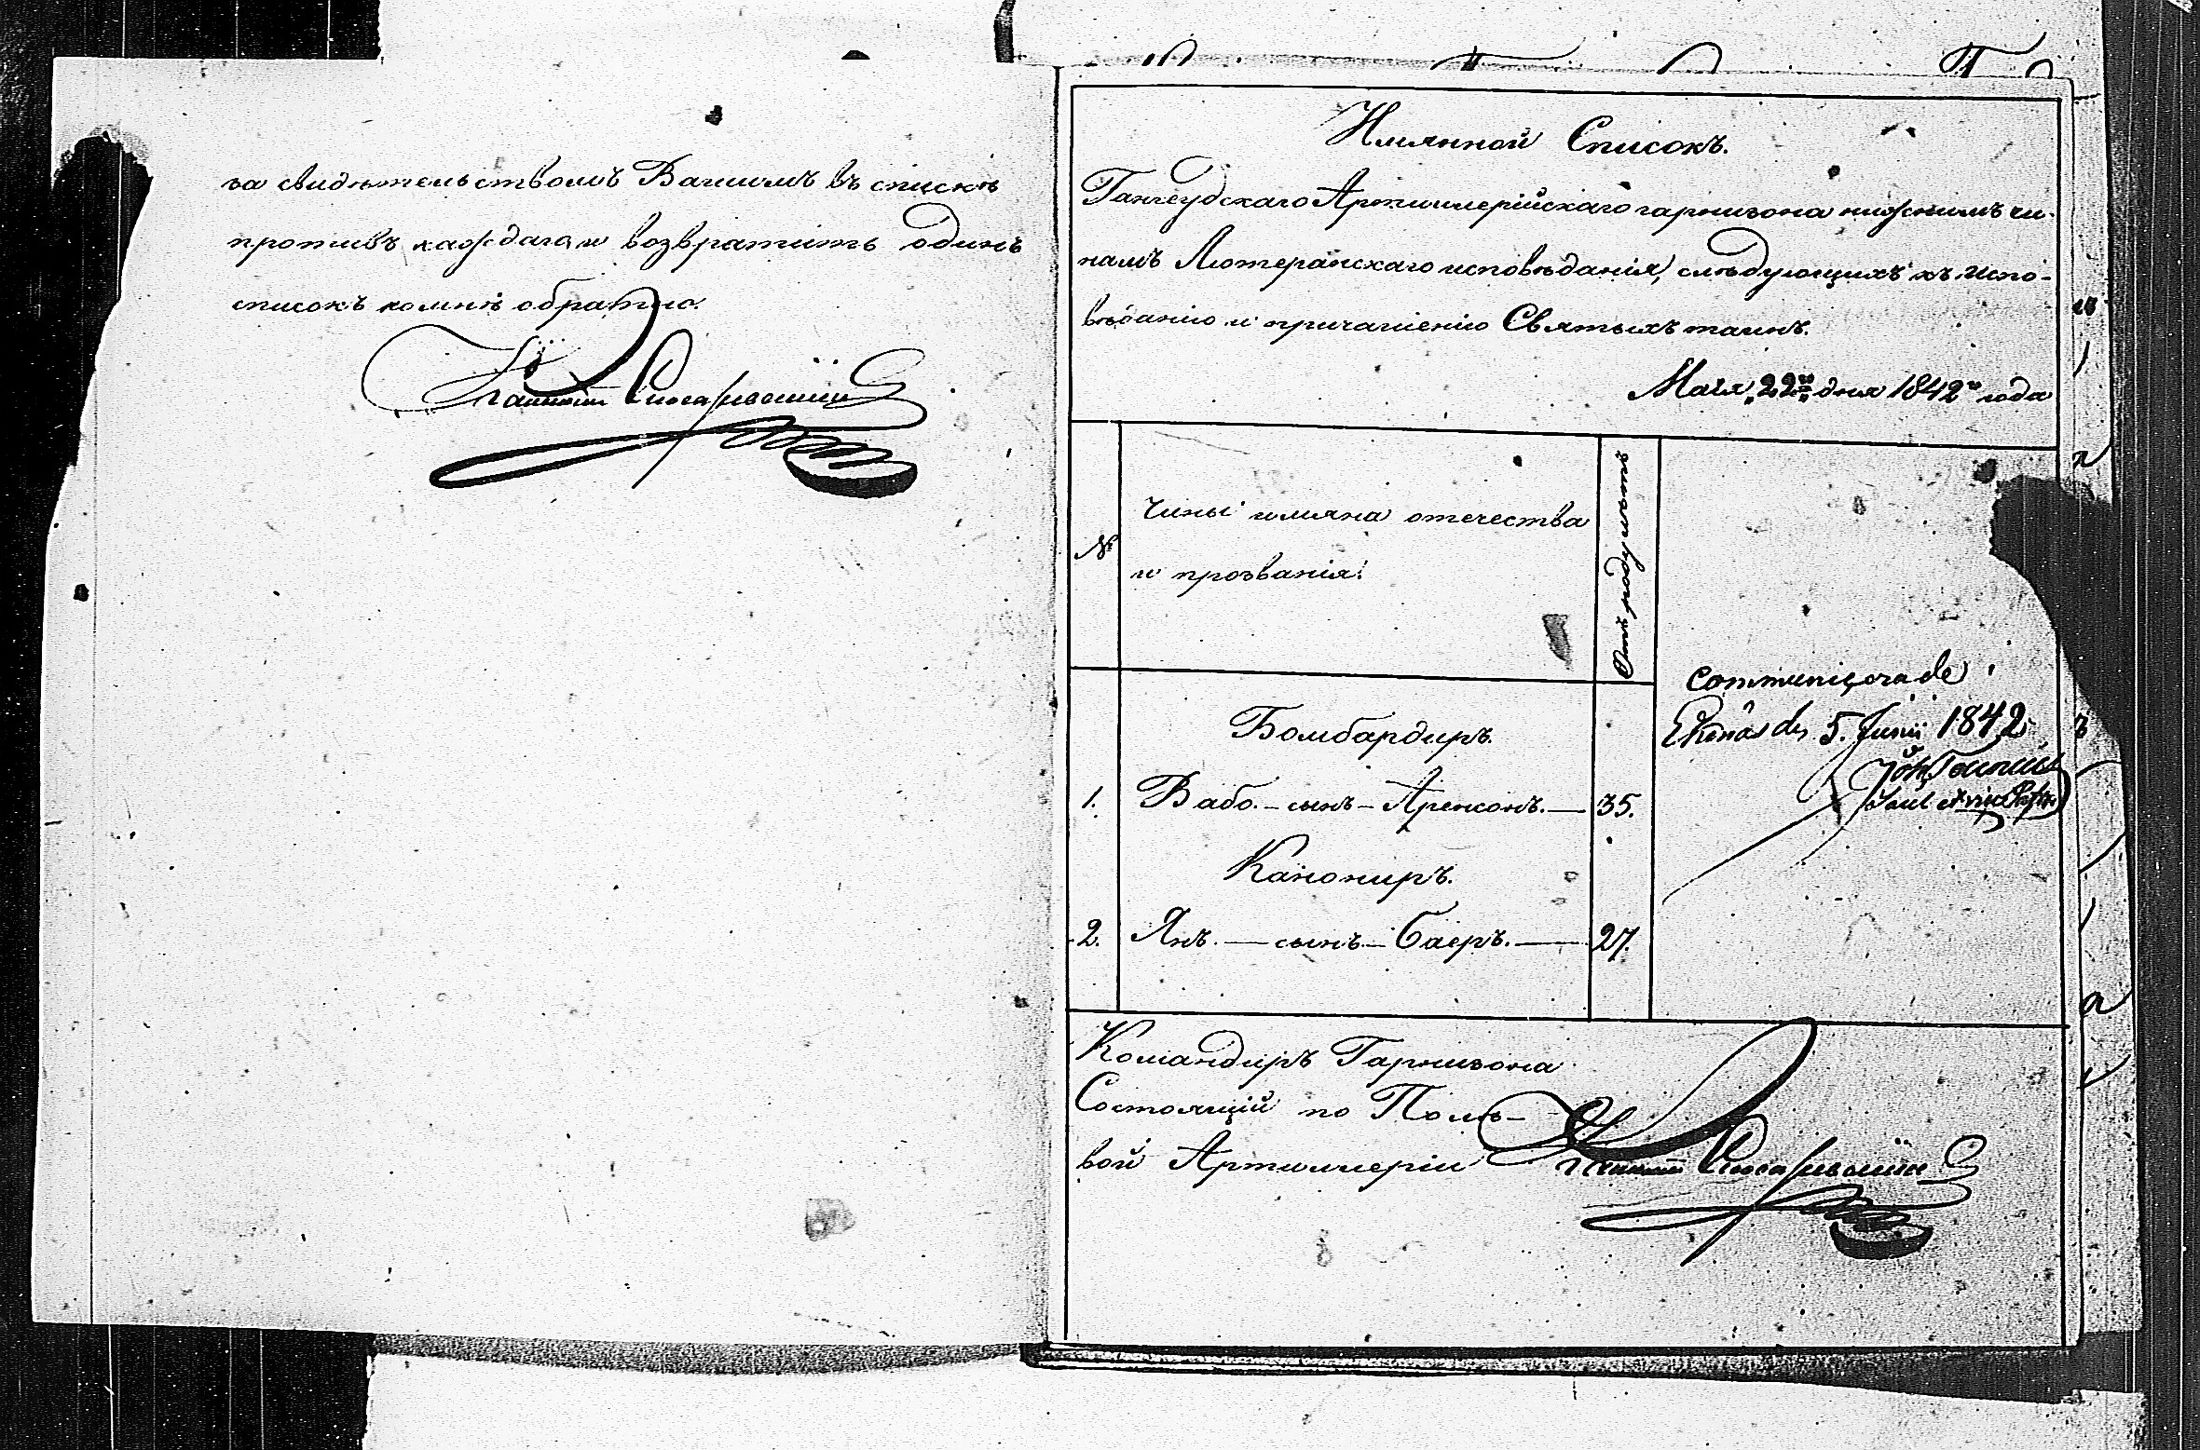 за свидѣтельствомъ Вашимъ въ спискѣ
противъ каждаго и возвратить одинъ
списокъ комнѣ обратно.
Имянной Списокъ.
Гангеудскаго Артиллерійскаго гарнизона нижнимъ чи-
намъ Лютеранскаго исповѣданія, слѣдующихъ къ испо-
вѣданію и причащенію Святыхъ таинъ.
Маія „22го„ дня 1842го года
№
Чины имяна отечества
и прозванія:
communicerade
Ekenäs d. 5. Junii 1842
Бомбардиръ.
1. Вабо. – сынъ – Аренсонъ. — 35.
Канониръ.
2. Янъ. — сынъ – Баеръ. — 27.
Командиръ Гарнизона
Состоящій по Поле-
вой Артиллеріи